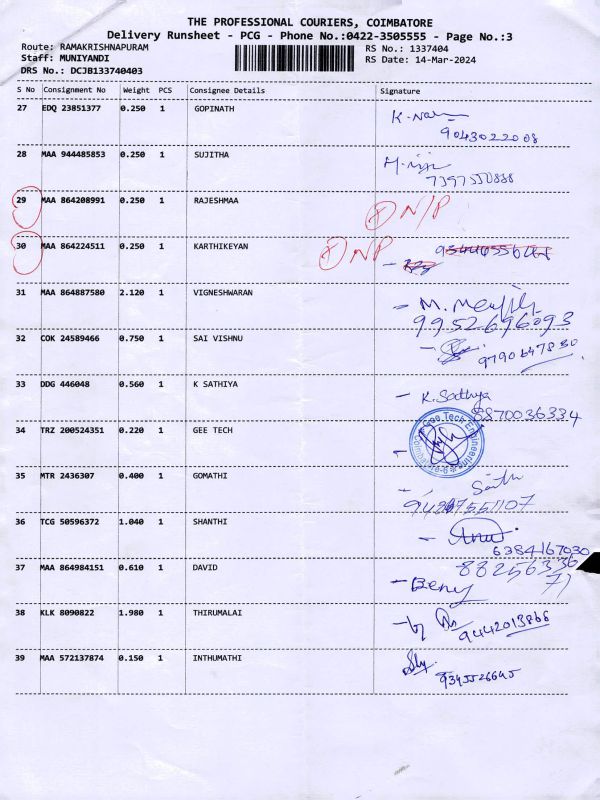 THE PROFESSIONAL COURIERS, COIMBATORE
Delivery Runsheet - PCG - Phone No.:0422-3505555 - Page No.:3
Route: RAMAKRISHNAPURAM RS No.: 1337404
Staff: MUNIYANDI RS Date: 14-Mar-2024
DRS No.: DCJB133740403
S No Consignment No Weight PCS Consignee Details Signature
27 EDQ 23851377 0.250 1 GOPINATH
9043022008
28 MAA 944485853 0.250 1 SUJITHA
7397550888
29 MAA 864208991 0.250 1 RAJESHMAA N/P
30 MAA 864224511 0.250 1 KARTHIKEYAN NP
31 MAA 864887580 2.120 1 VIGNESHWARAN
9952696093
32 COK 24589466 0.750 1 SAI VISHNU
9790647830
33 DDG 446048 0.560 1 K SATHIYA K. Sathya
8870036334
34 TRZ 200524351 0.220 1 GEE TECH Gee Tech Engineering Coimbatore-6
35 MTR 2436307 0.400 1 GOMATHI
36 TCG 50596372 1.040 1 SHANTHI
6384167030
37 MAA 864984151 0.610 1 DAVID 88256336
71
38 KLK 8090822 1.980 1 THIRUMALAI
9442013866
39 MAA 572137874 0.150 1 INTHUMATHI
9345526645